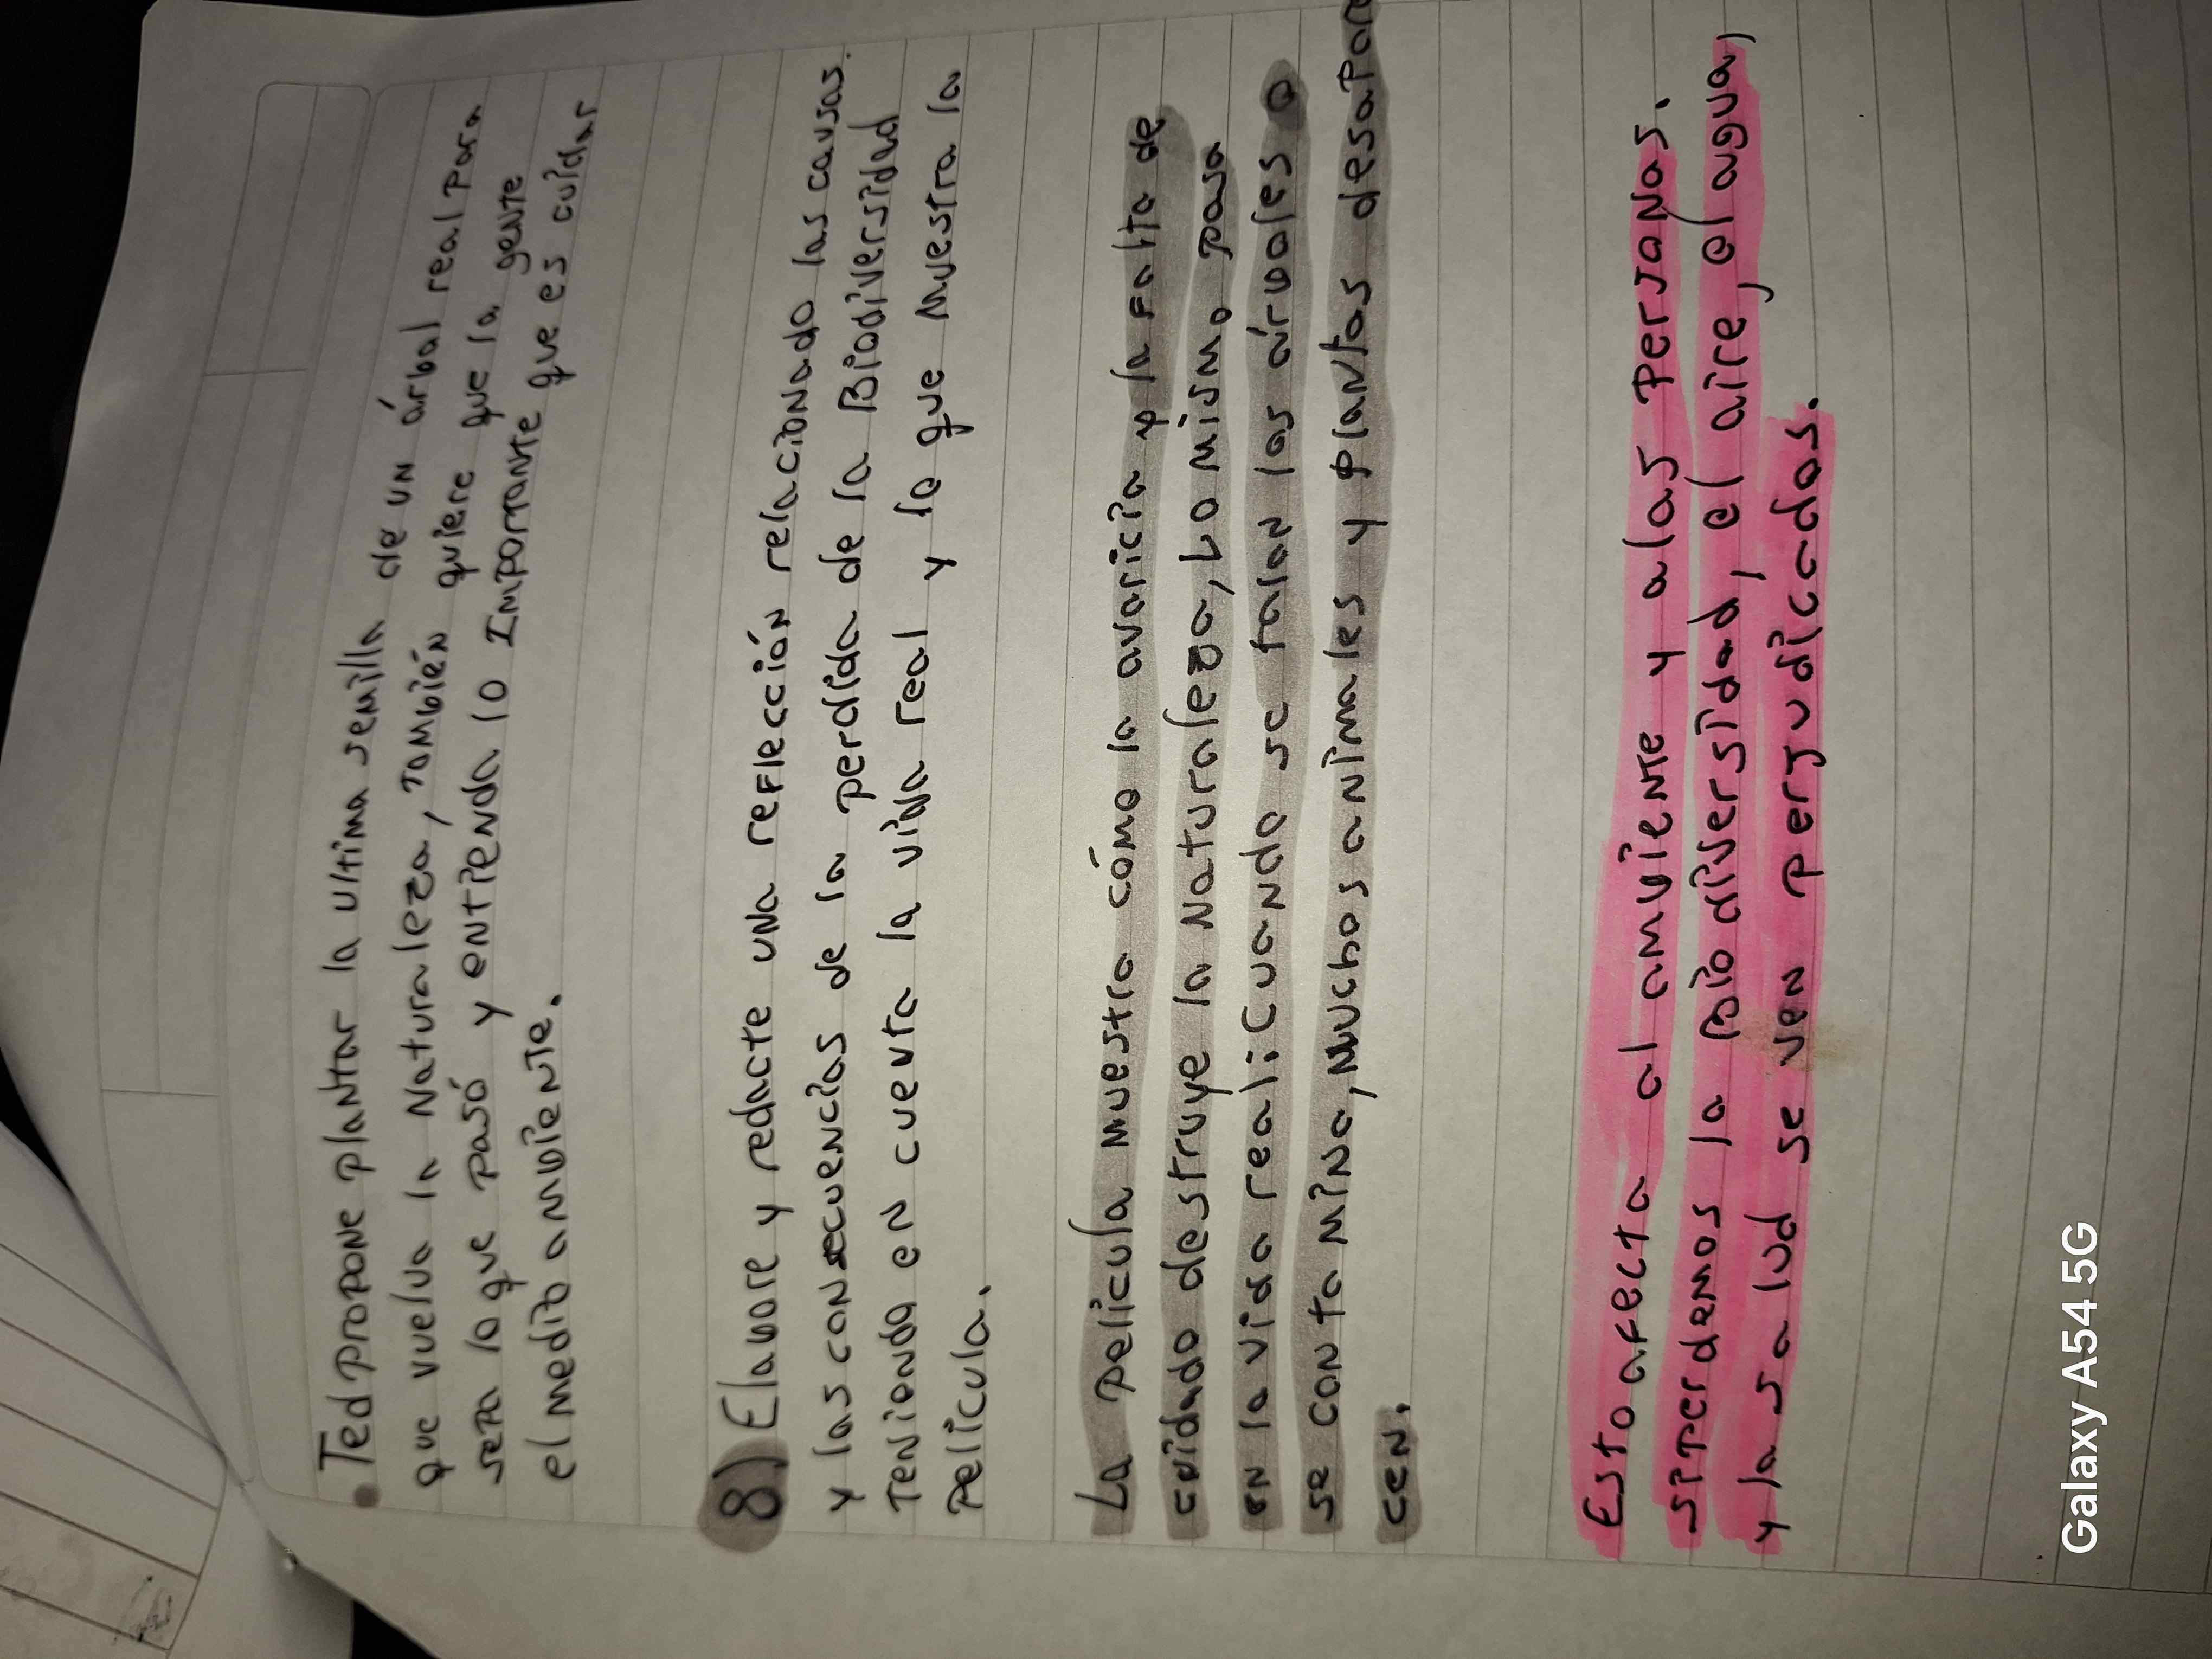 • Ted propone plantar la ultima semilla de un árbol real para
que vuelva la Naturaleza, también quiere que la gente
sepa lo que pasó y entienda lo Importante que es cuidar
el medio ambiente.
8) Elabore y redacte una reflección relacionado las causas.
y las consecuencias de la perdida de la Biodiversidad
Teniendo en cuenta la vida real y lo que muestra la
Pelicula.
La película muestra cómo la avaricia y la falta de
cuidado destruye la naturaleza, Lo mismo pasa
en la vida real: Cuando se talan los árboles o
se contamina, muchos animales y plantas desapare
cen.
Esto afecta al amviente y alas personas.
si Perdemos la Biodiversidad, el aire, el agua,
y la salud se ven perjudicados.
Galaxy A54 5G